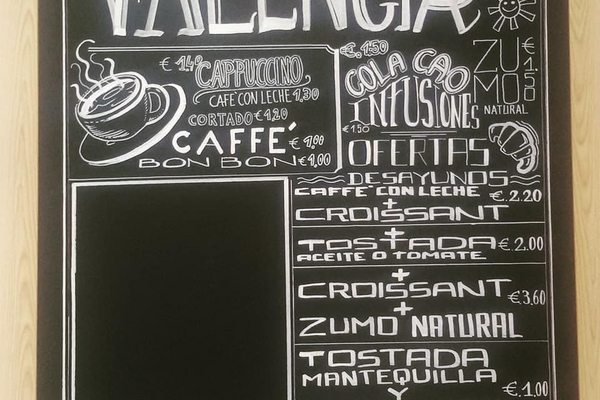 VALENCIA
€ 1,40 CAPPUCCINO,
CAFE' CON LECHE 1,30
CORTADO €1,20
CAFFE' €1,00
BON BON €1,00
€.1,50
COLA CAO
INFUSIONES
€1.50
ZUMO €1.50
NATURAL
OFERTAS
DESAYUNOS
CAFFE' CON LECHE €.2.20
+
CROISSANT
TOSTADA €2.00
ACEITE O TOMATE
+
CROISSANT €3,60
+
ZUMO NATURAL
TOSTADA
MANTEQUILLA
Y €.1.00